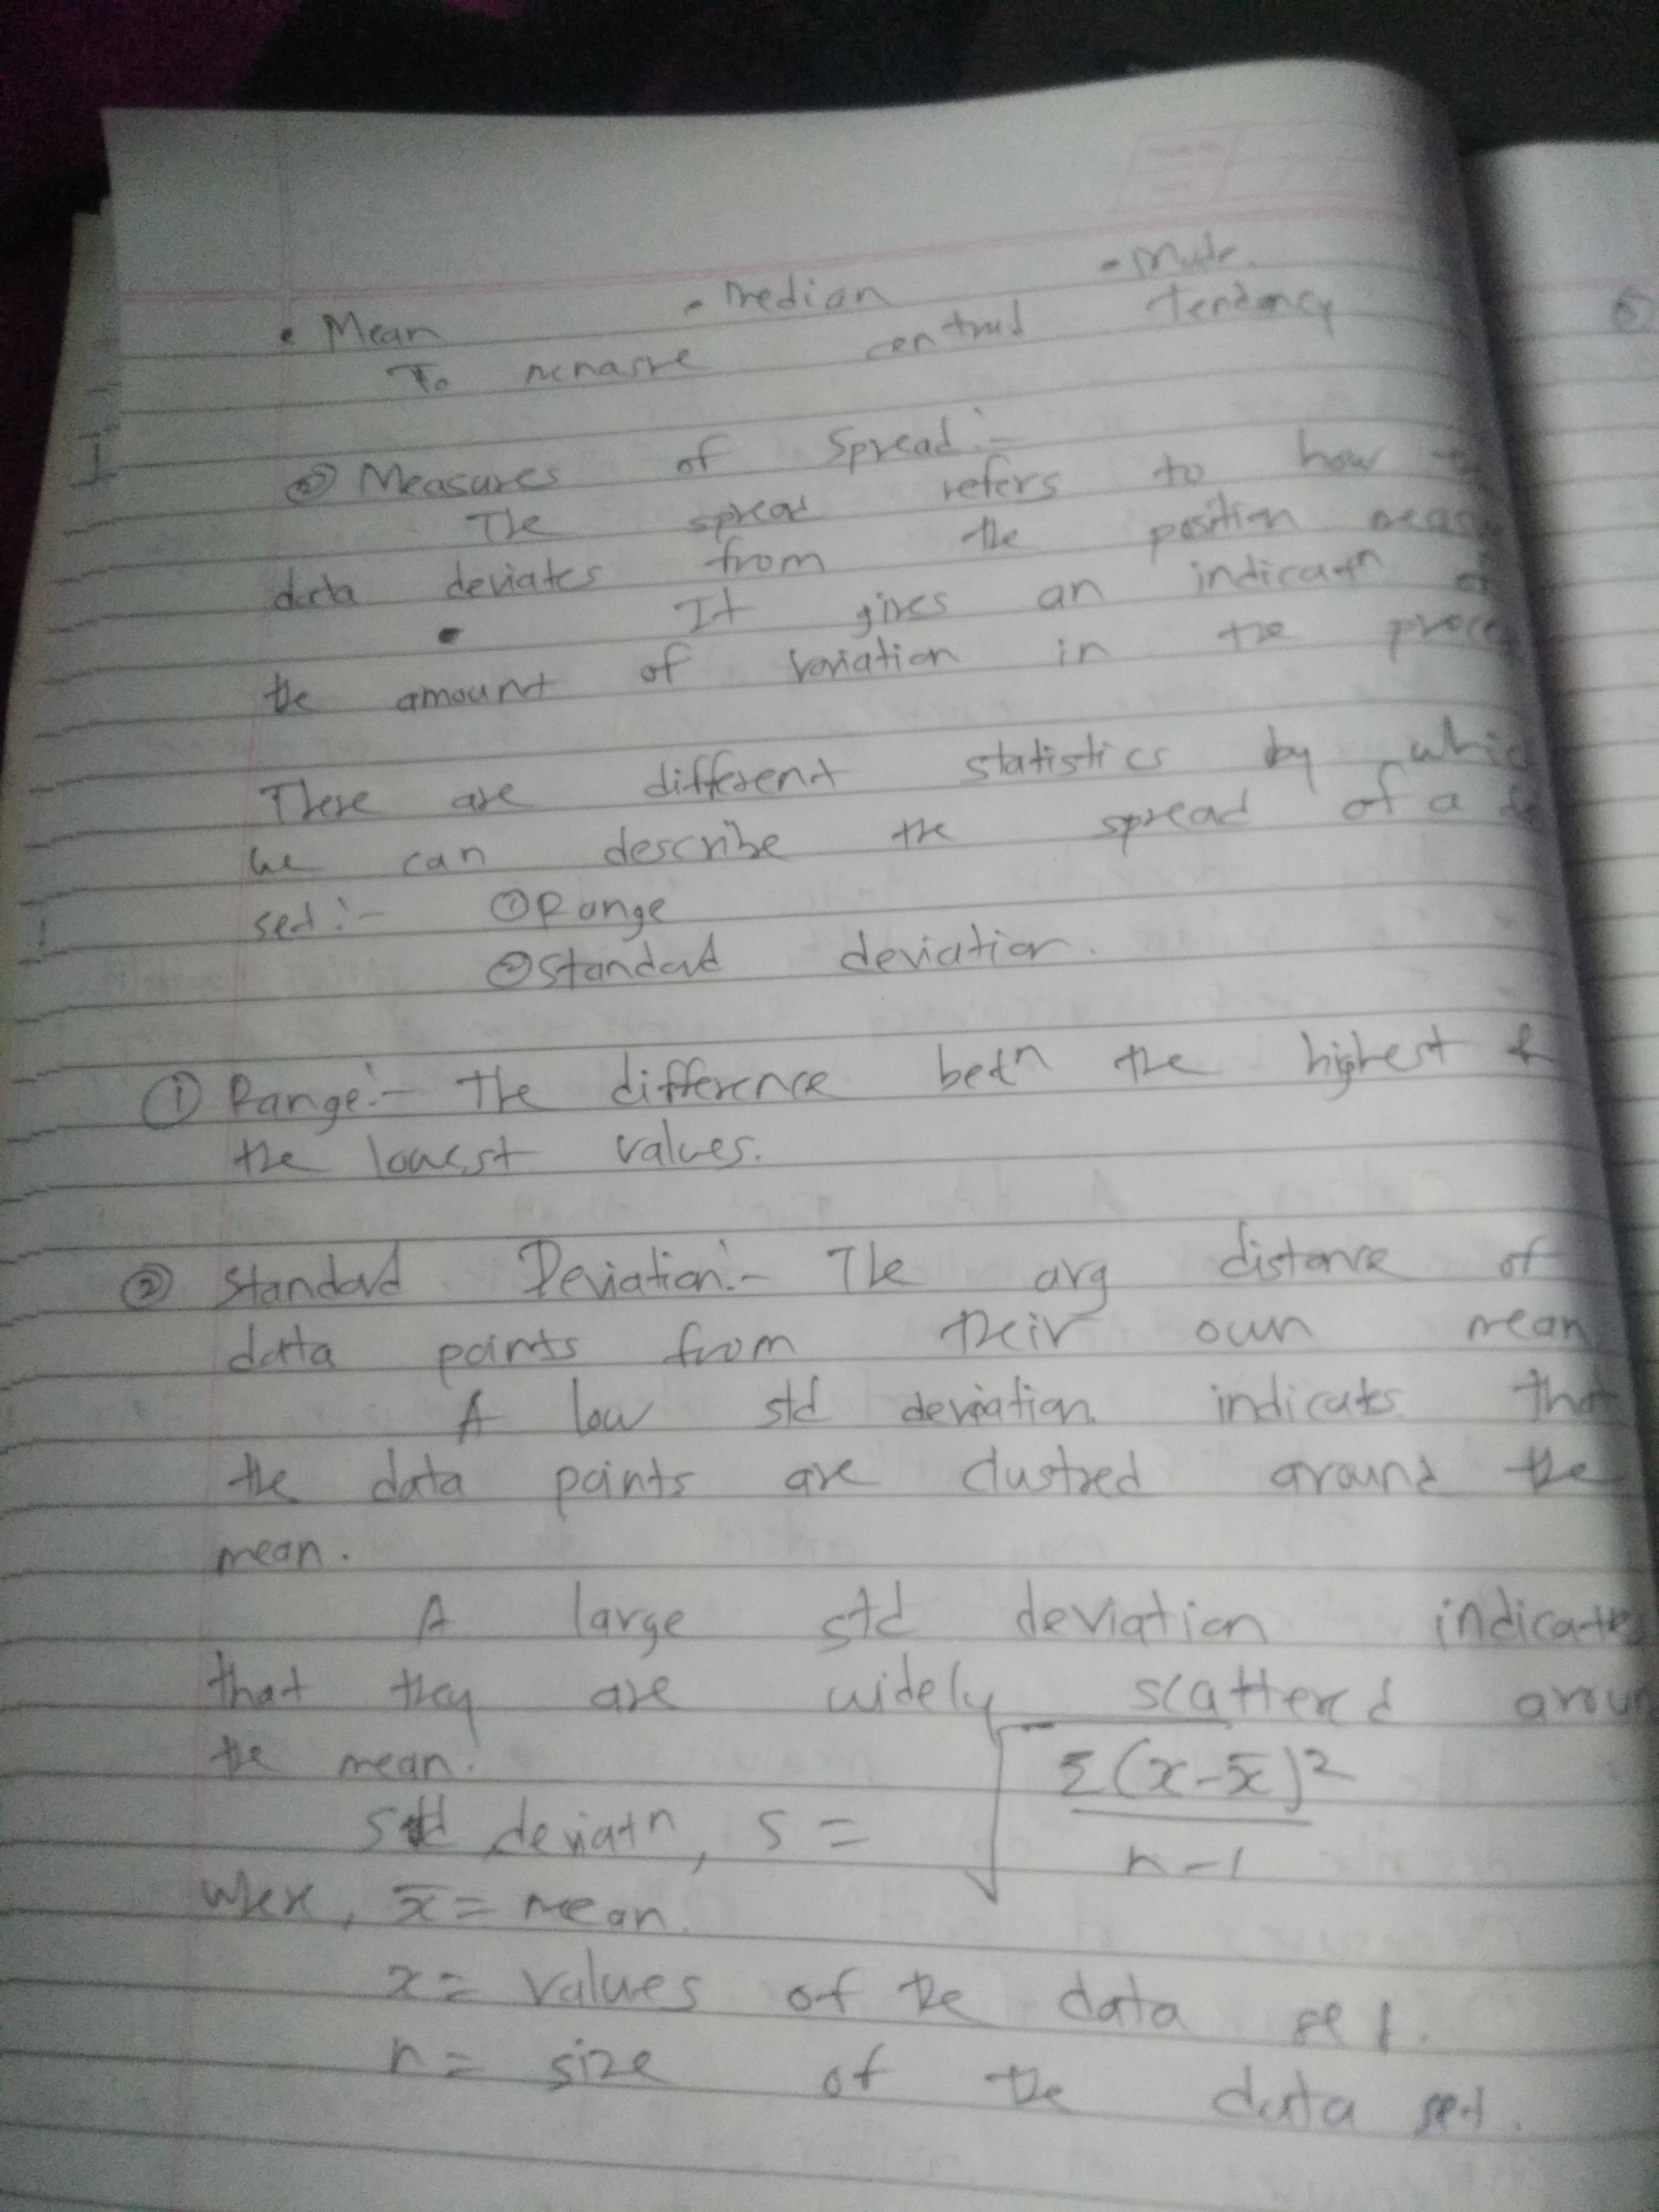 • Mean - Median - Mode.
To measure central Tendency
② Measures of Spread :-
The spread refers to how
data deviates from the position
• It gives an indicatn of
the amount of variation in the
There are different statistics by
we can describe the spread of a
set :- ① Range
② Standard deviation.
① Range :- The difference betn the highest &
the lowest values.
② Standard Deviation :- The avg distance of
data points from their own mean
A low std deviation indicates that
the data points are clustred around the
mean.
A large std deviation indicates
that they are widely scattered
the mean.
Std deviatn, s = √ Σ(x-x̄)² / n-1
where, x̄ = mean.
x = values of the data set.
n = size of the data set.